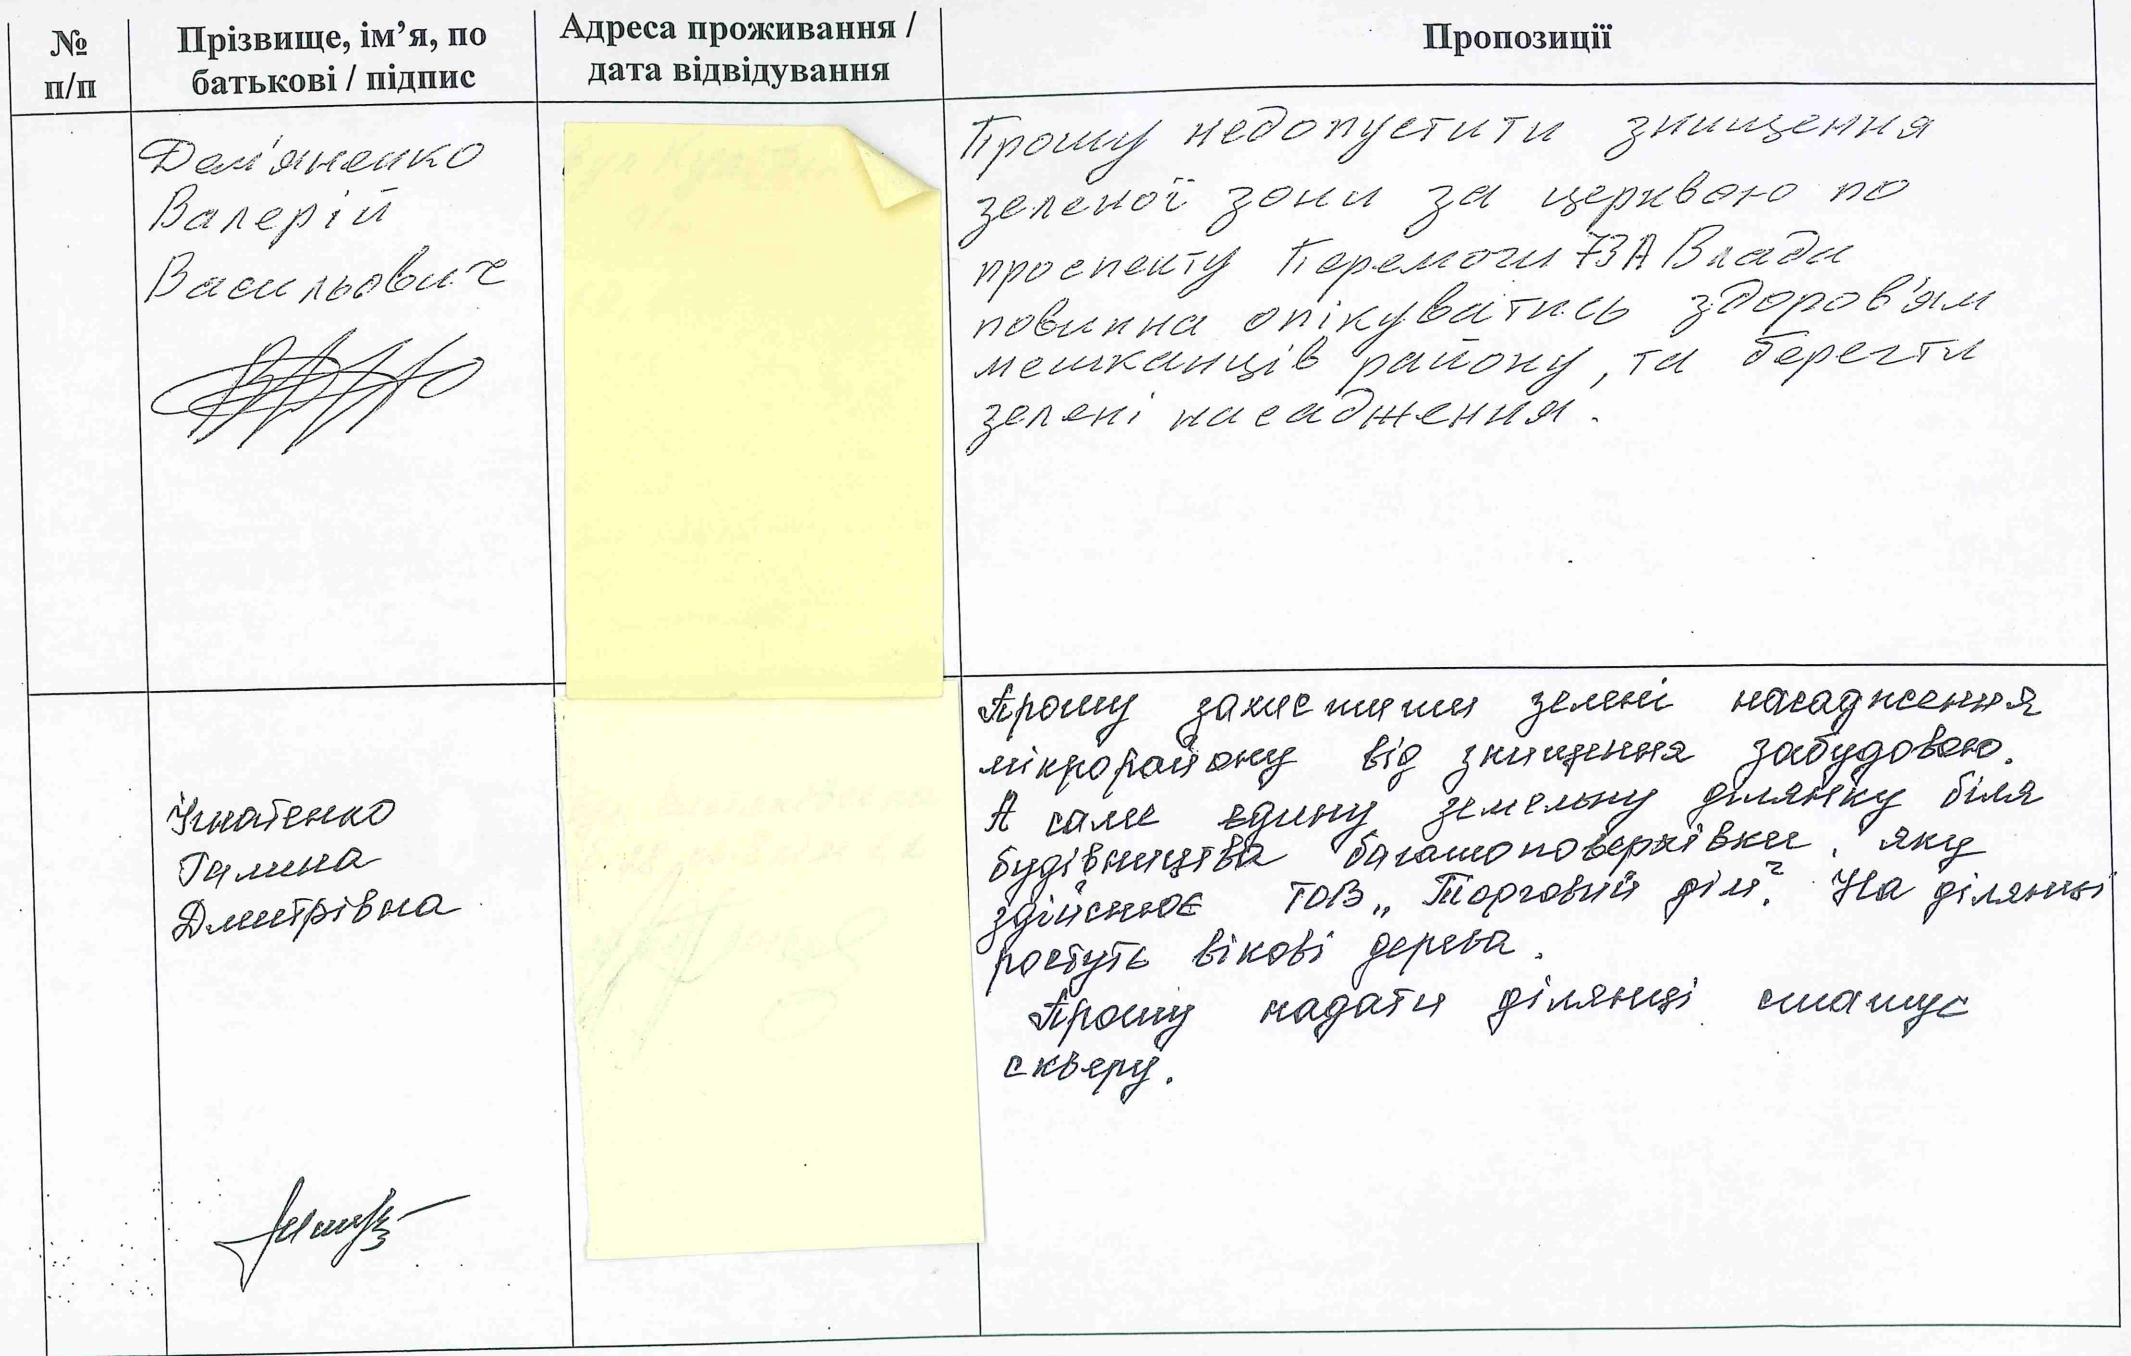 № п/п
Прізвище, ім’я, по батькові / підпис
Адреса проживання / дата відвідування
Пропозиції
Дем'яненко
Валерій
Васильович
Прошу недопустити знищення
зеленої зони за церквою по
проспекту Перемоги 73А Влади
повинна опікуватись здоров'ям
мешканців району, та берегти
зелені насадження.
Ігнатенко
Галина
Дмитрівна
Прошу захистити зелені насадження
мікрорайону від знищення забудовою.
А саме єдину земельну ділянку біля
будівництва багатоповерхівки, яку
здійснює ТОВ „Торговий дім". На ділянці
ростуть вікові дерева.
Прошу надати ділянці статус
скверу.